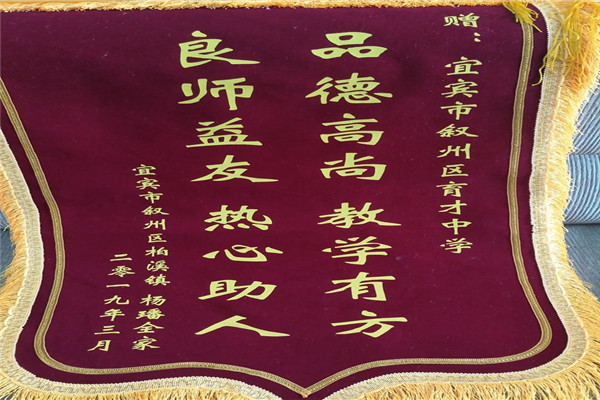 赠：宜宾市叙州区育才中学
品德高尚 教学有方
良师益友 热心助人
宜宾市叙州区柏溪镇 杨璠全家
二零一九年三月